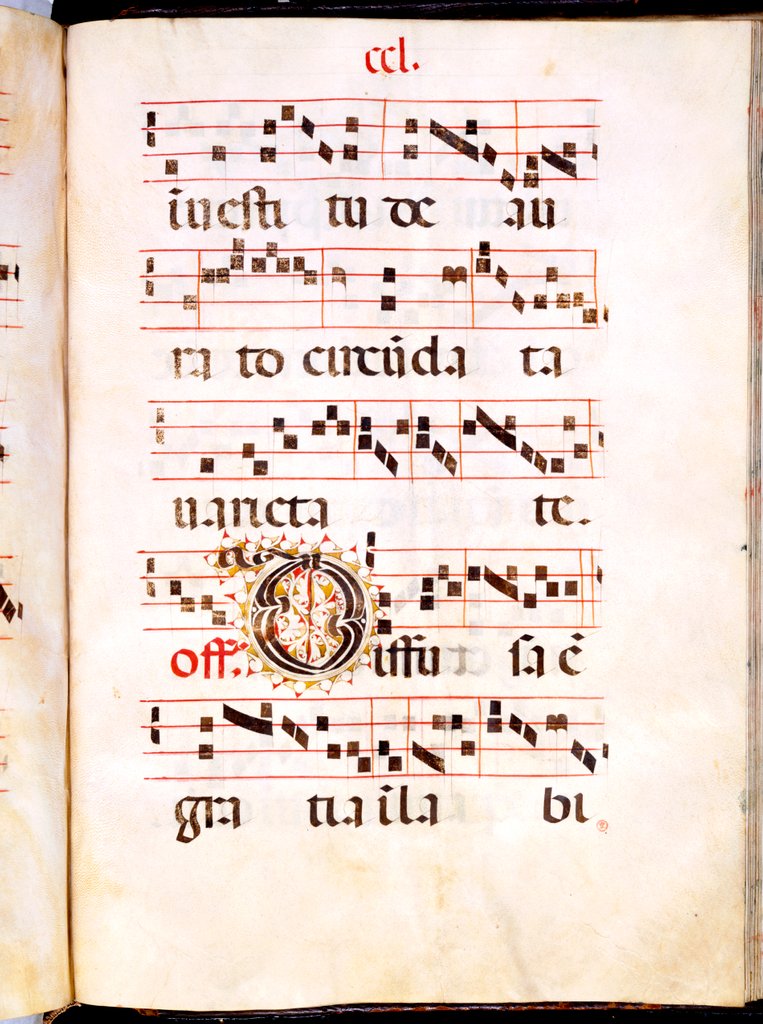 ccl.
ī uesti tu de au
ra to circūda ta
uarieta te.
off. Diffu sa ē
gra tia ī la bi